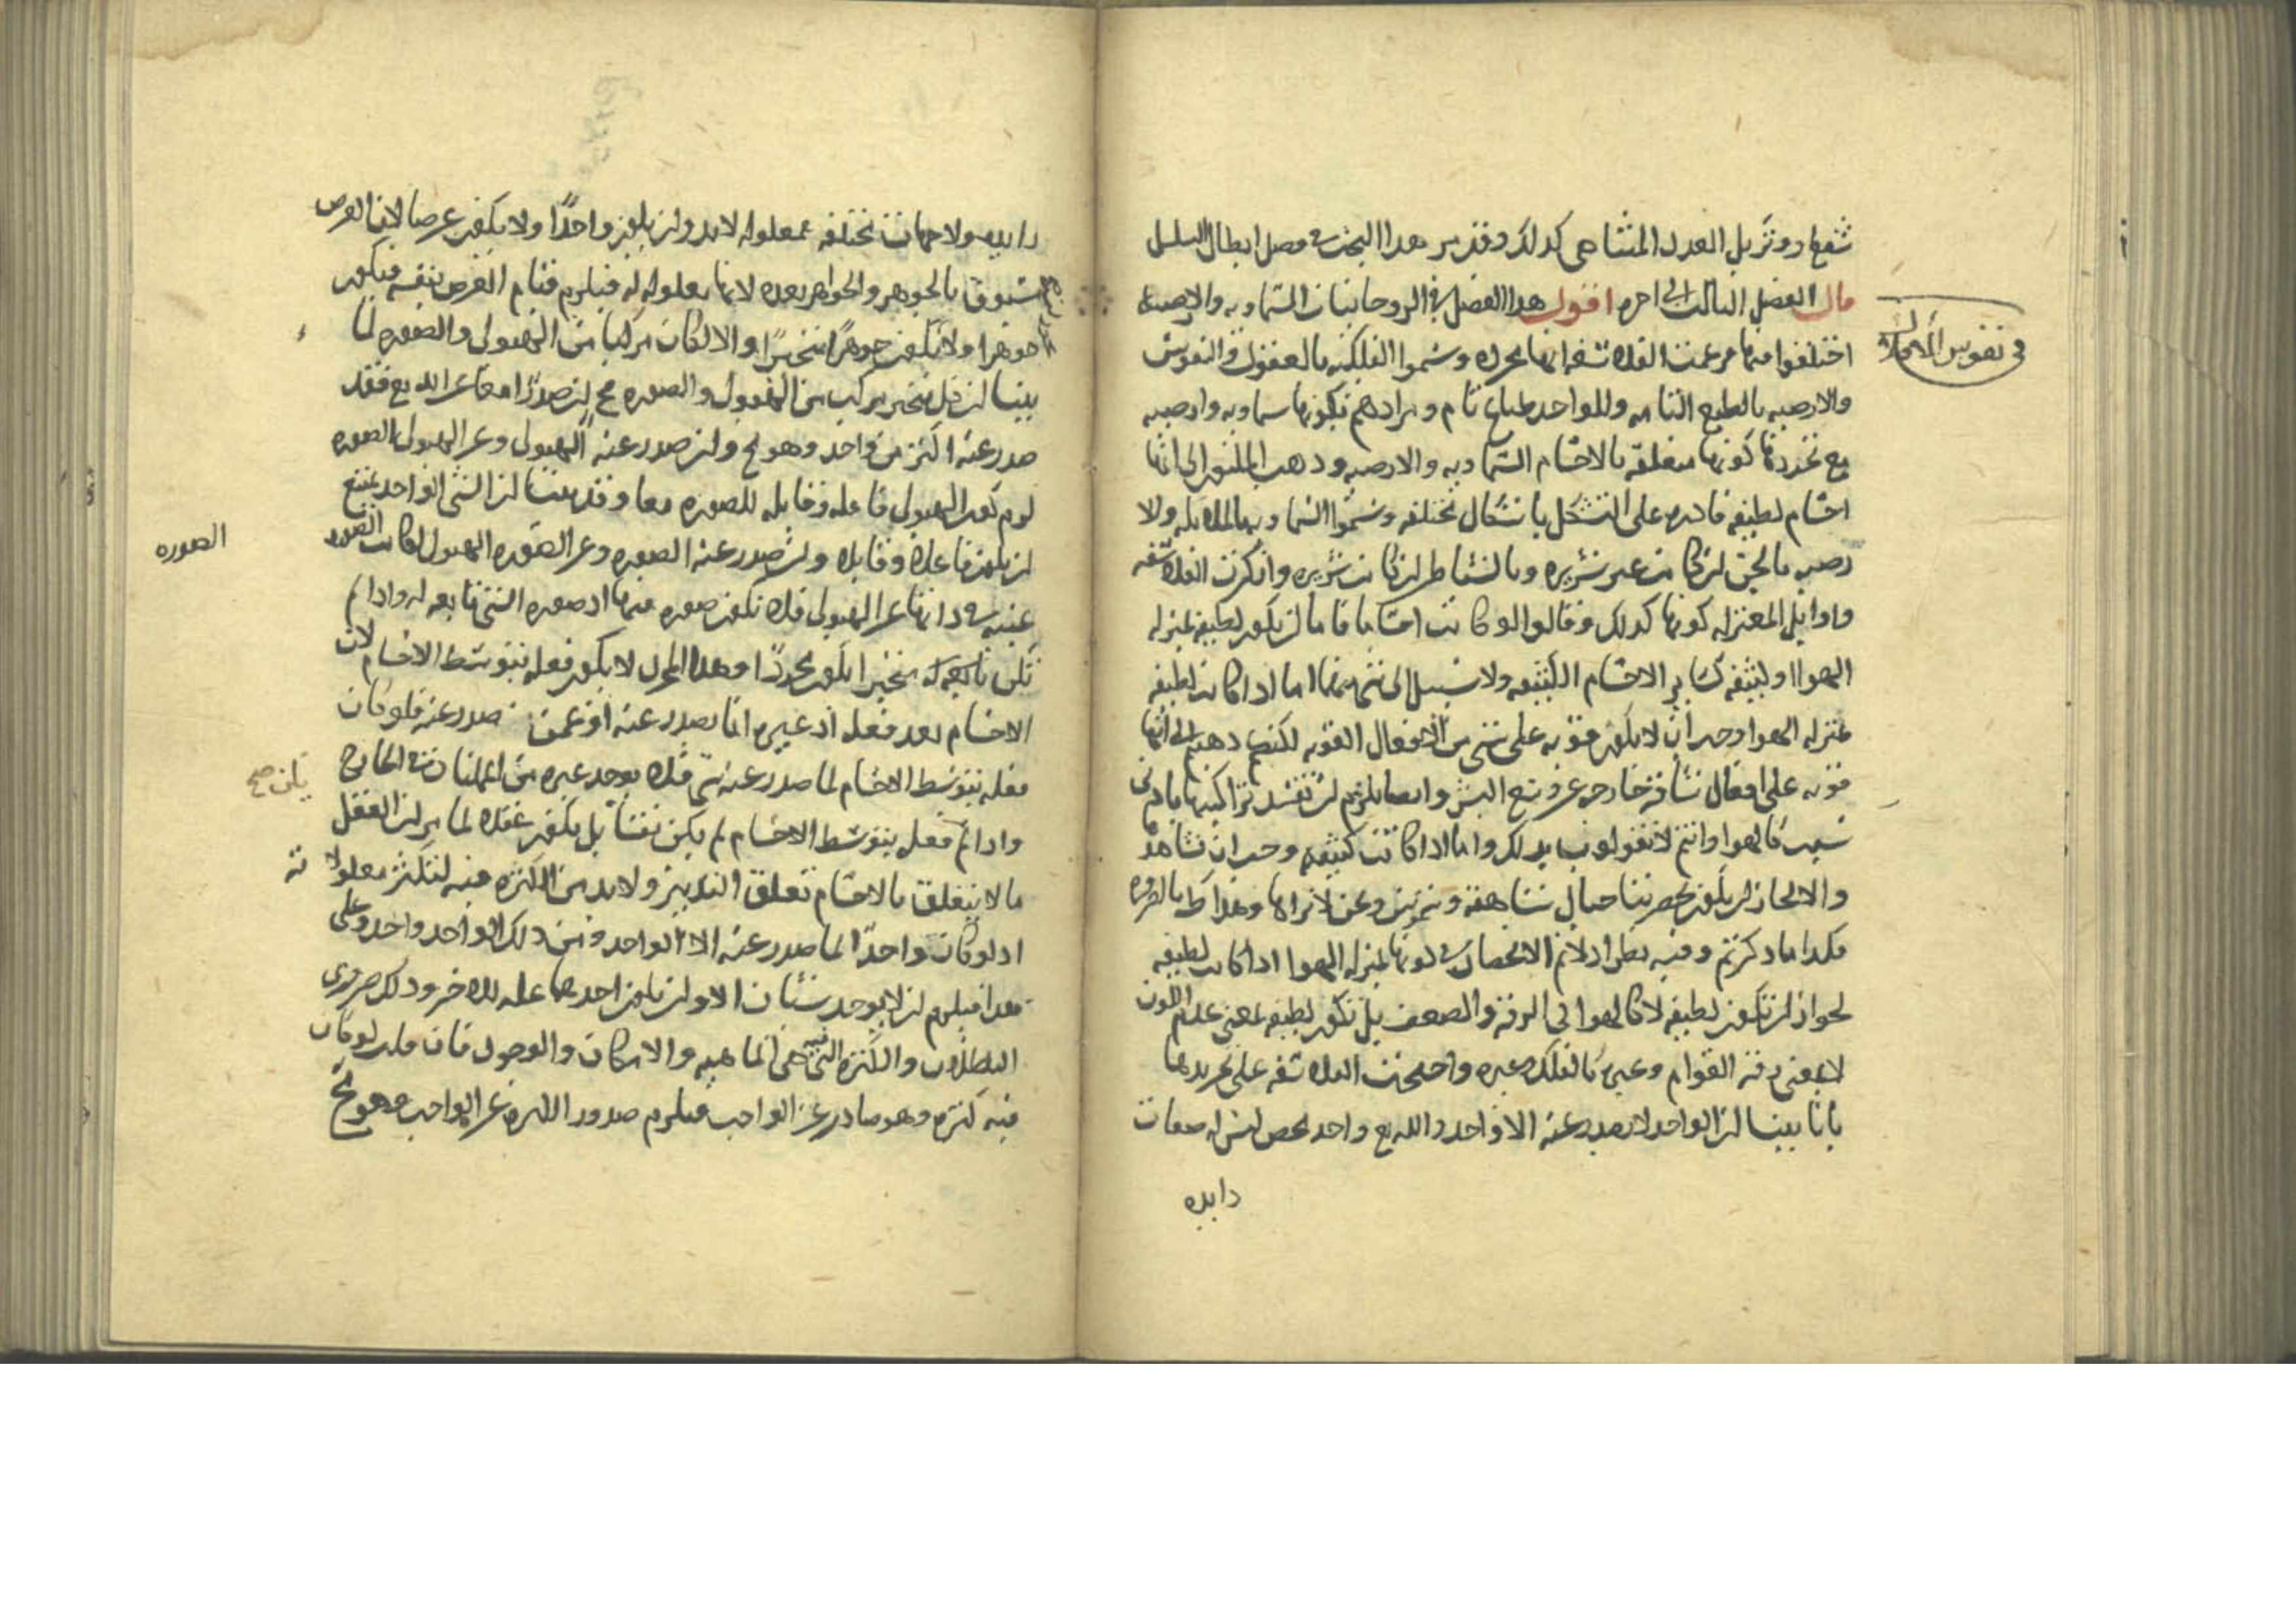 شفعا دون تنزيل العدد المتناهي كذلك وقد مر هذا البحث في فصل ابطال التسلسل
قال الفصل الثالث الى اخره اقول هذا الفصل في الروحانيات السماويه والارضيه
اختلفوا فيها فزعمت الفلاسفه انها مجرده وسموا الفلكيه بالعقول والنفوس
والارضيه بالطبع التام وللواحد طباع تام ومرادهم بكونها سماويه وارضيه
مع تجردها كونها متعلقه بالاجسام السماويه والارضيه وذهب المليون الى انها
اجسام لطيفه قادره على التشكل باشكال مختلفه وسموا السماويه بالملايكه والا
رضيه بالجن ان كانت غير شريره وبالشياطين ان كانت شريره وانكرت الفلاسفه
واوايل المعتزله كونها كذلك وقالوا لو كانت اجساما فاما ان يكون لطيفه بمنزله
الهوا او كثيفه كساير الاجسام الكثيفه ولا سبيل الى شي منهما اما اذا كانت لطيفه
بمنزله الهوا وجب ان لا يكون قويه على شي من الافعال القويه لكنكم ذهبتم الى انها
قويه على افعال شاقه خارجه عن وسع البشر وايضا يلزم ان تفسد تراكيبها بادنى
سبب كالهوا وانتم لا تقولون بذلك واما اذا كانت كثيفه وجب ان نشاهد
والا لجاز ان يكون بحضرتنا جبال شاهقه ونحن لا نراها وهذا باطل بالضروره
هكذا ما ذكرتم وفيه نظر اذ لا نم الانحصار في كونها بمنزله الهوا اذا كانت لطيفه
لجواز ان تكون لطيفه لا كالهوا في الرقه والضعف بل تكون لطيفه بمعنى عدم اللون
لا بمعنى رقه القوام وغيره كالفلك وغيره واحتجت الفلاسفه على تجريدها
بانا بينا ان الواحد لا يصدر عنه الا واحد والله تع واحد محض ليس له صفات
زايده
في نفوس
زايده ولا جهات مختلفه فمعلوله لا بد وان يكون واحدا ولا يكون عرضا لان العرض
مسبوق بالجوهر والجواهر بعده لانها معلوله له فيلزم قيام العرض بنفسه فيكون
جوهرا ولا يكون جوهرا متحيزا والا لكان مركبا من الهيولى والصوره لما
بينا ان كل متحيز مركب من الهيولى والصوره فح ان صدرا معا عن الله تع فقد
صدر عنه اكثر من واحد وهو مح وان صدر عنه الهيولى وعن الهيولى الصوره
لزم كون الهيولى فاعله وقابله للصوره معا وقد بينا ان الشي الواحد يمتنع
ان يكون فاعلا وقابلا وان صدر عنه الصوره وعن الصوره الهيولى لكانت الصوره
غنيه في ذاتها عن الهيولى فلا تكون صوره فيها اذ صوره الشي تابعه له واذا لم
تكن متحيزا يكون مجردا وهذا المجرد لا يكون فعله بتوسط الاجسام لان
الاجسام بعد فعله اذ غيره انما يصدر عنه او عمن صدر عنه فلو كان
فعله بتوسط الاجسام لما صدر عنه شي فلا يوجد غيره من الممكنات في الخارج
واذا لم فعله بتوسط الاجسام لم يكن نفسا بل يكون عقلا لما مر ان العقل
ما لا يتعلق بالاجسام تعلق التدبير ولا بد من الكثره فيه لتكثر معلولاته
اذ لو كان واحدا لما صدر عنه الا الواحد ومن ذلك الواحد واحد وعلى
هذا فيلزم ان لا يوجد شيئان الا وان يكون احدهما عله للاخر وذلك ضروري
البطلان والكثره التي فيه هي الماهيه والامكان والوجود فان قلت لو كان
فيه كثره وهو صادر عن الواجب فيلزم صدور الكثره عن الواجب وهو مح
الصوره
يكن صح